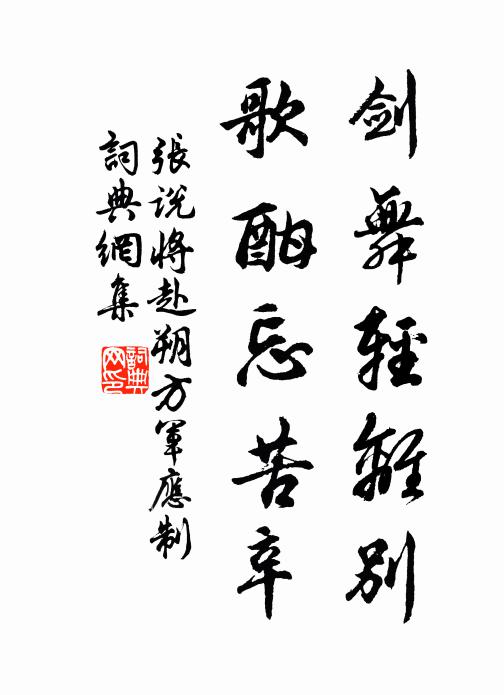 剑舞轻离别
歌酣忘苦辛
張说将赴朔方軍應制
詞典網集
詞典网印